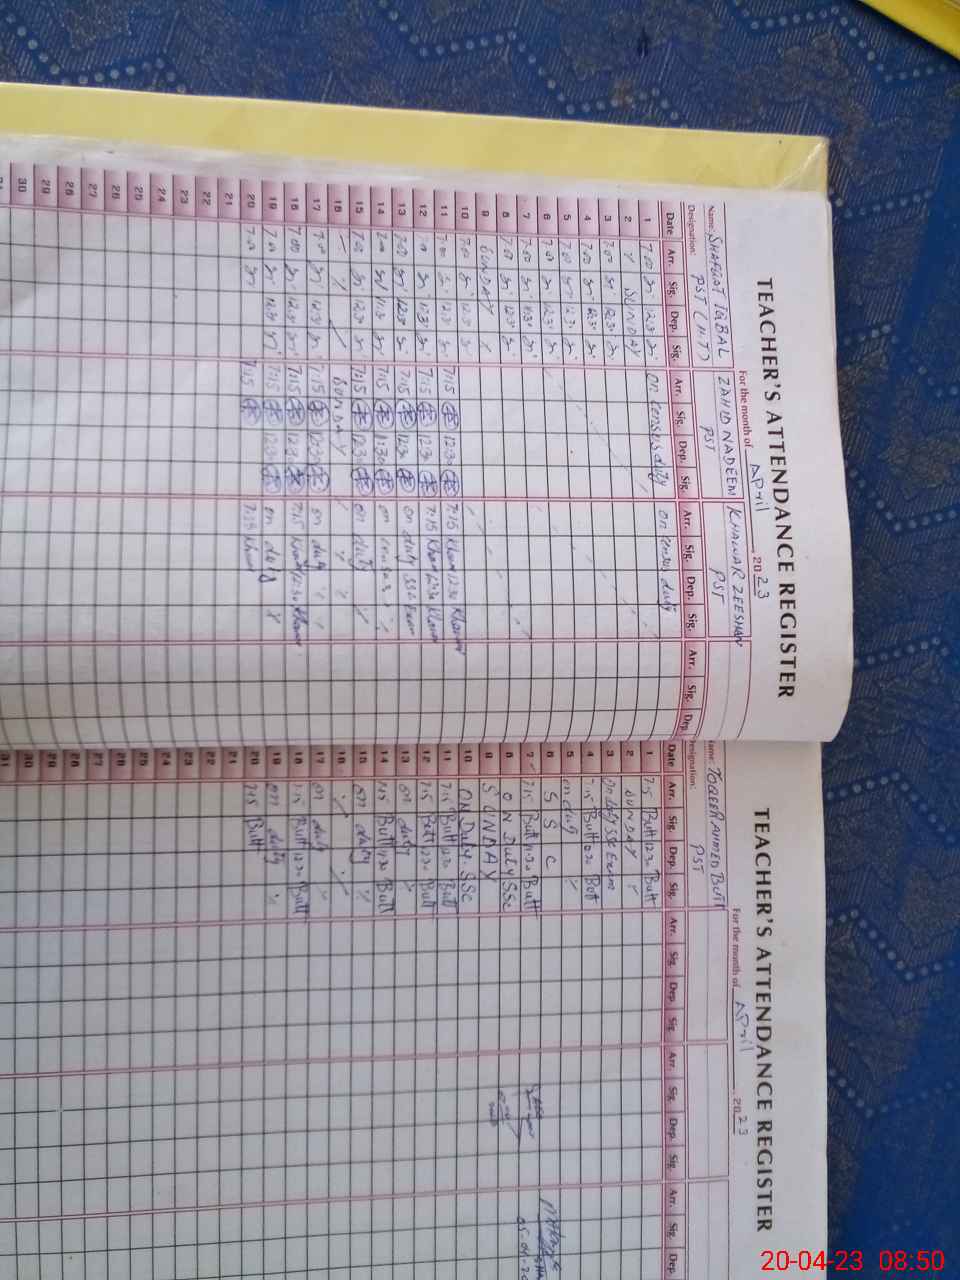 TEACHER'S ATTENDANCE REGISTER
For the month of April 2023
Name: SHAFQAT IQBAL ZAHID NADEEM KHAWAR ZEESHAN
Designation: PST (HT) PST PST
Date Arr. Sig. Dep. Sig. Arr. Sig. Dep. Sig. Arr. Sig. Dep. Sig. Arr. Sig. Dep.
1 7:00 12:30 on census duty on census duty
2 SUNDAY
3 7:00 12:30
4 7:00 12:30
5 7:00 12:30
6 7:00 12:30
7 7:00 11:30
8 7:00 12:30
9 SUNDAY
10 7:00 12:30
11 7:00 12:30 7:15 12:30 7:15 Khawar 12:30 Khawar
12 7:00 12:30 7:15 12:30 7:15 Khawar 12:30 Khawar
13 7:00 12:30 7:15 12:30 on duty SSC Exam
14 7:00 11:30 7:15 11:30 on census
15 7:00 12:30 7:15 12:30 on duty
16 SUNDAY
17 7:00 12:30 7:15 12:30 on duty
18 7:00 12:30 7:15 12:30 7:15 Khawar 12:30 Khawar
19 7:00 12:30 7:15 12:30 on duty
20 7:00 7:15 7:15 Khawar
21
22
23
24
25
26
27
28
29
30
31
TEACHER'S ATTENDANCE REGISTER
For the month of April 2023
Name: TOQEER AHMED BUTT
Designation: PST
Date Arr. Sig. Dep. Sig. Arr. Sig. Dep. Sig. Arr. Sig. Dep. Sig. Arr. Sig. Dep.
1 7:15 Butt 12:30 Butt
2 SUNDAY
3 On duty SSC Exam
4 7:15 Butt 12:30 Butt
5 on duty
6 S S C
7 7:15 Butt 11:30 Butt
8 ON Duty SSC
9 SUNDAY
10 ON Duty SSC
11 7:15 Butt 12:30 Butt
12 7:15 Butt 12:30 Butt
13 on duty
14 7:15 Butt 11:30 Butt
15 on duty
16
17 on duty
18 7:15 Butt 12:30 Butt
19 on duty
20 7:15 Butt
21
22
23
24
25
26
27
28
29
30
31
20-04-23 08:50